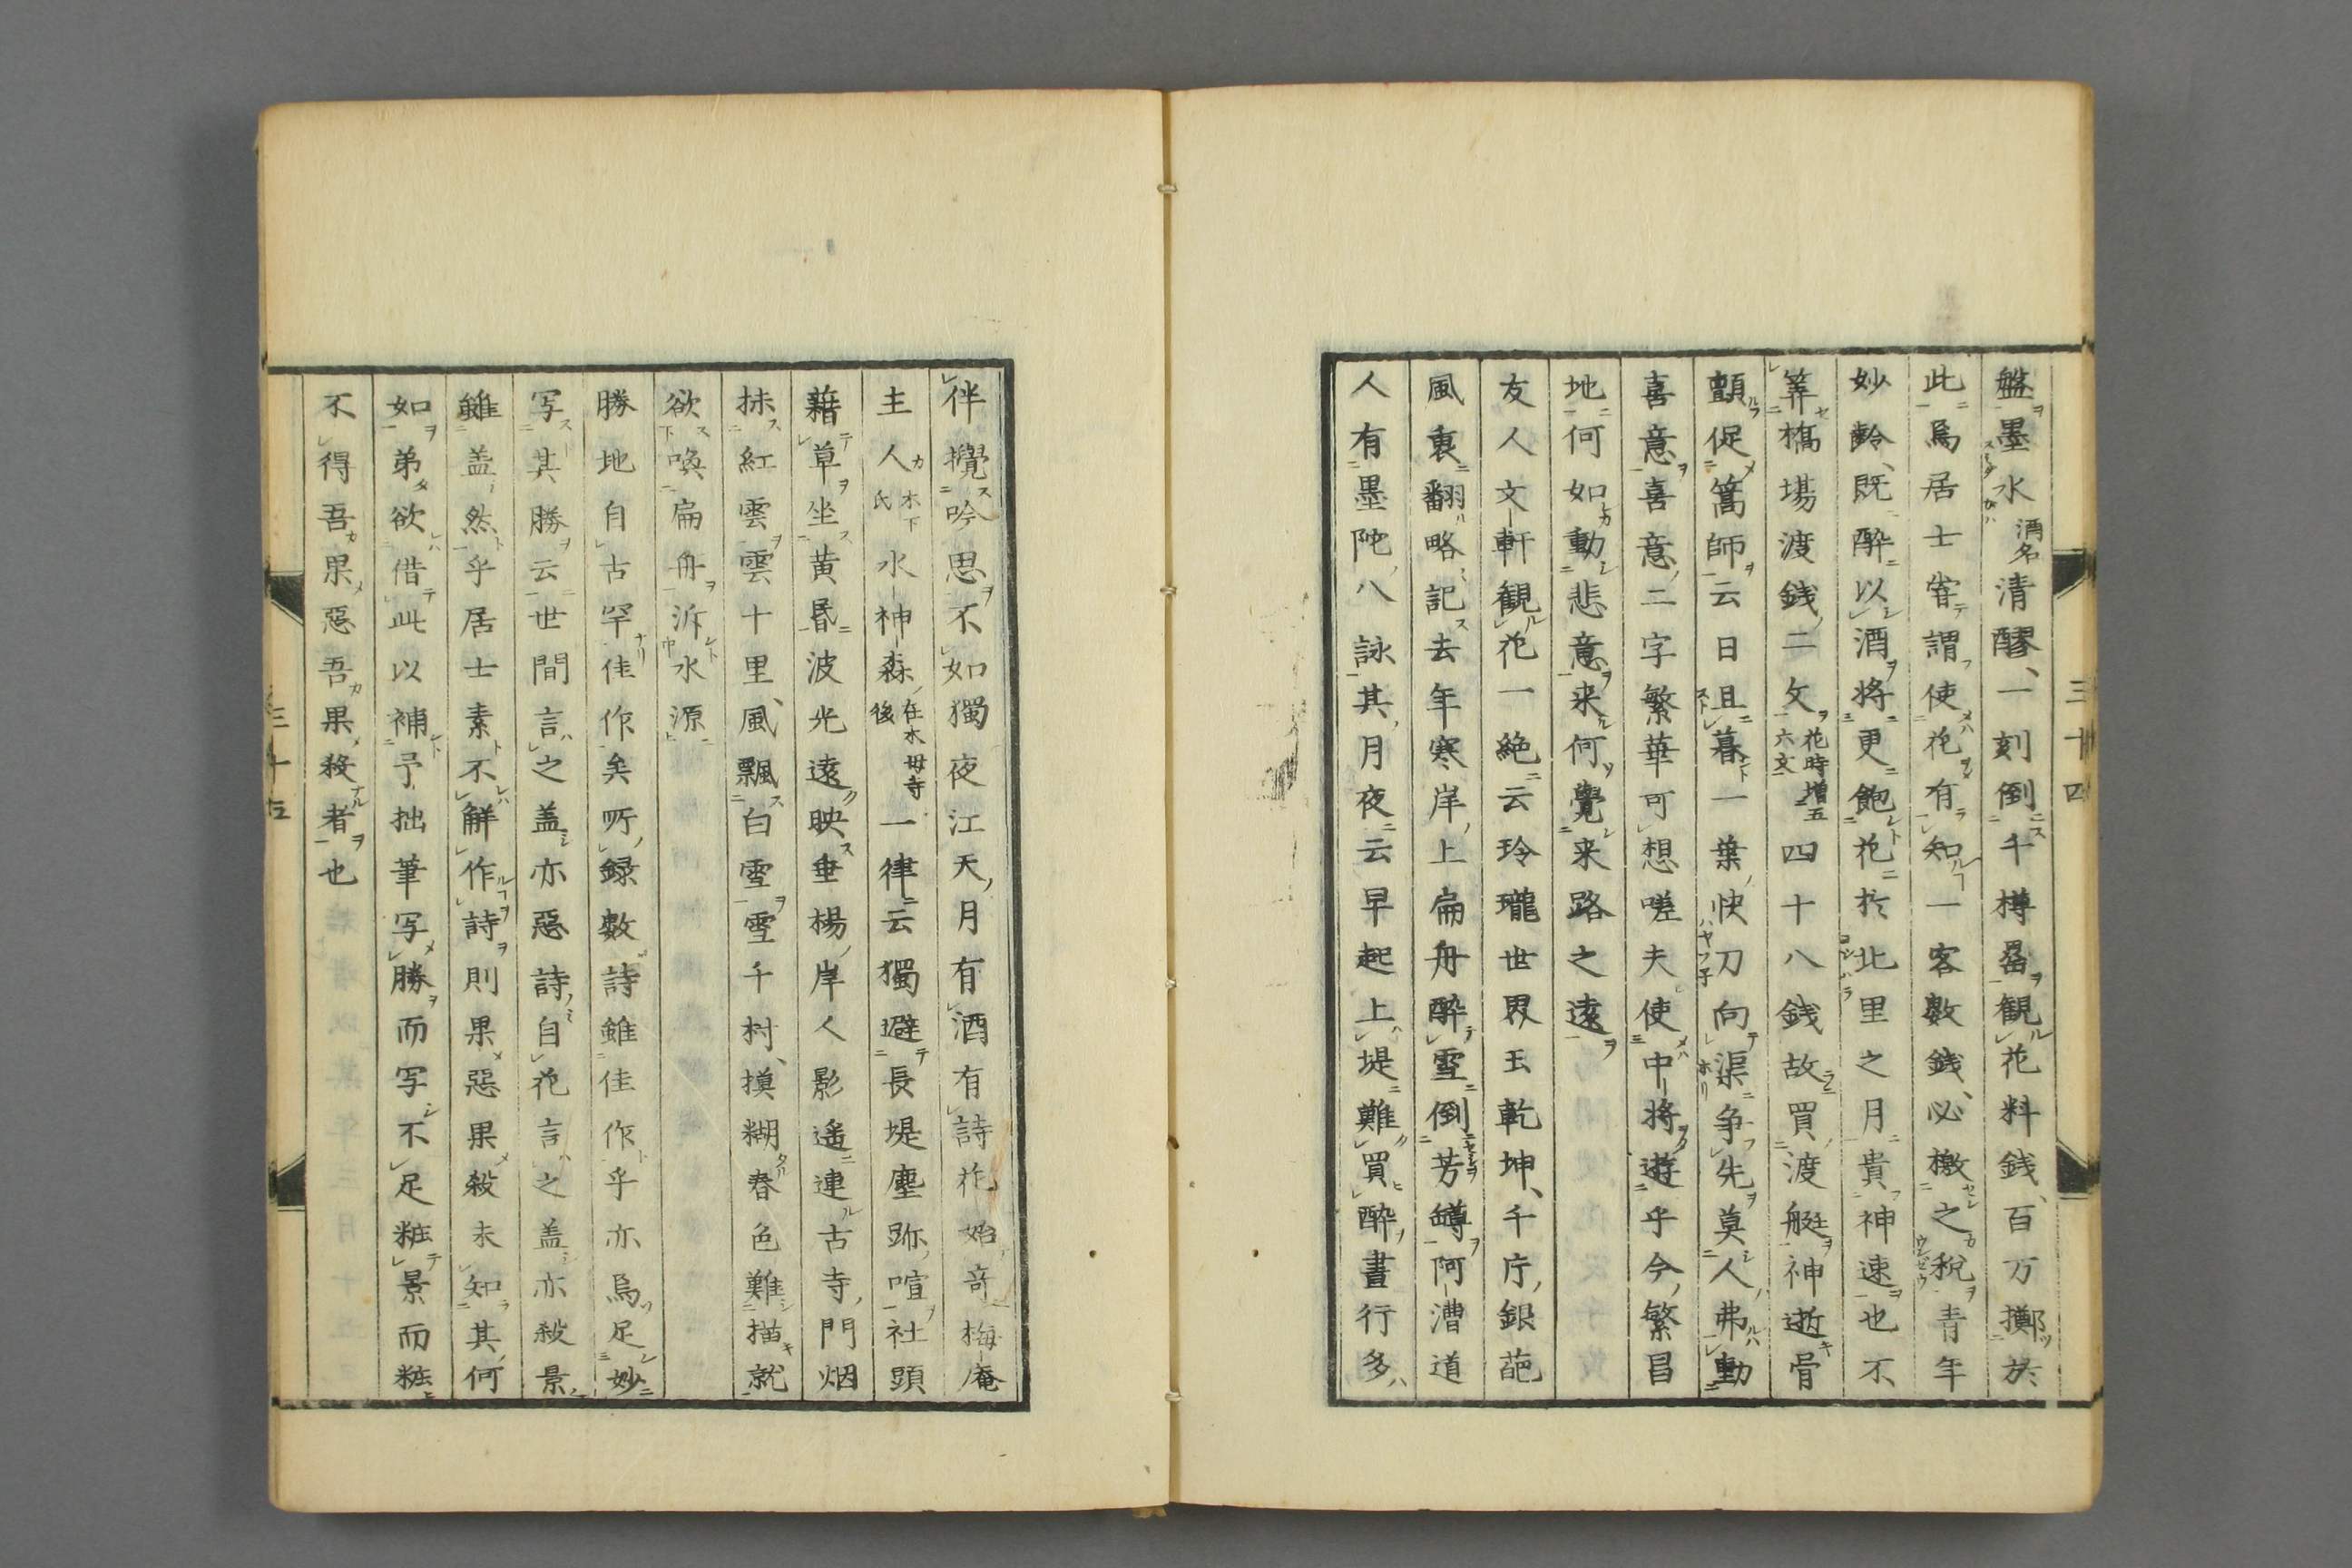 盤墨水酒名清醪、一刻倒千樽畧観花料銭、百万擲於
此烏居士甞謂使花有知一客數銭、必檄之税青年
妙齡、既酔以酒将更飽花於北里之月貴神速也不
筭橋場渡銭二文花時増五六文四十八銭故買渡艇神逝骨
顫促篙師云日且暮一葉快刀向渠争先莫人弗動
喜意喜意二字繁華可想嗟夫使中将遊乎今繁昌
地何如動悲意来何覺来路之遠
友人文軒観花一絶云玲瓏世界玉乾坤、千庁銀葩
風裏翻略記去年寒岸上扁舟酔雪倒芳罇阿漕道
人有墨陀八詠其月夜云早起上堤難買酔晝行多
三十四
伴攪吟思不如獨夜江天月有酒有詩花始奇梅庵
主人木下氏水神森在水毋寺後一律云獨避長堤塵跡喧社頭
藉草坐黄昏波光遠映垂楊岸人影遥連古寺門烟
抹紅雲雲十里、風飄白雪雪千村、摸糊春色難描就
欲喚扁舟泝水源
勝地自古罕佳作矣所録數詩雖佳作乎亦烏足妙
写其勝云世間言之盖亦惡詩自花言之盖亦殺景
雖盖然乎居士素不解作詩則果惡果殺未知其何
如弟欲借此以補予拙筆写勝而写不足粧景而粧
不得吾果惡吾果殺者也
三十五